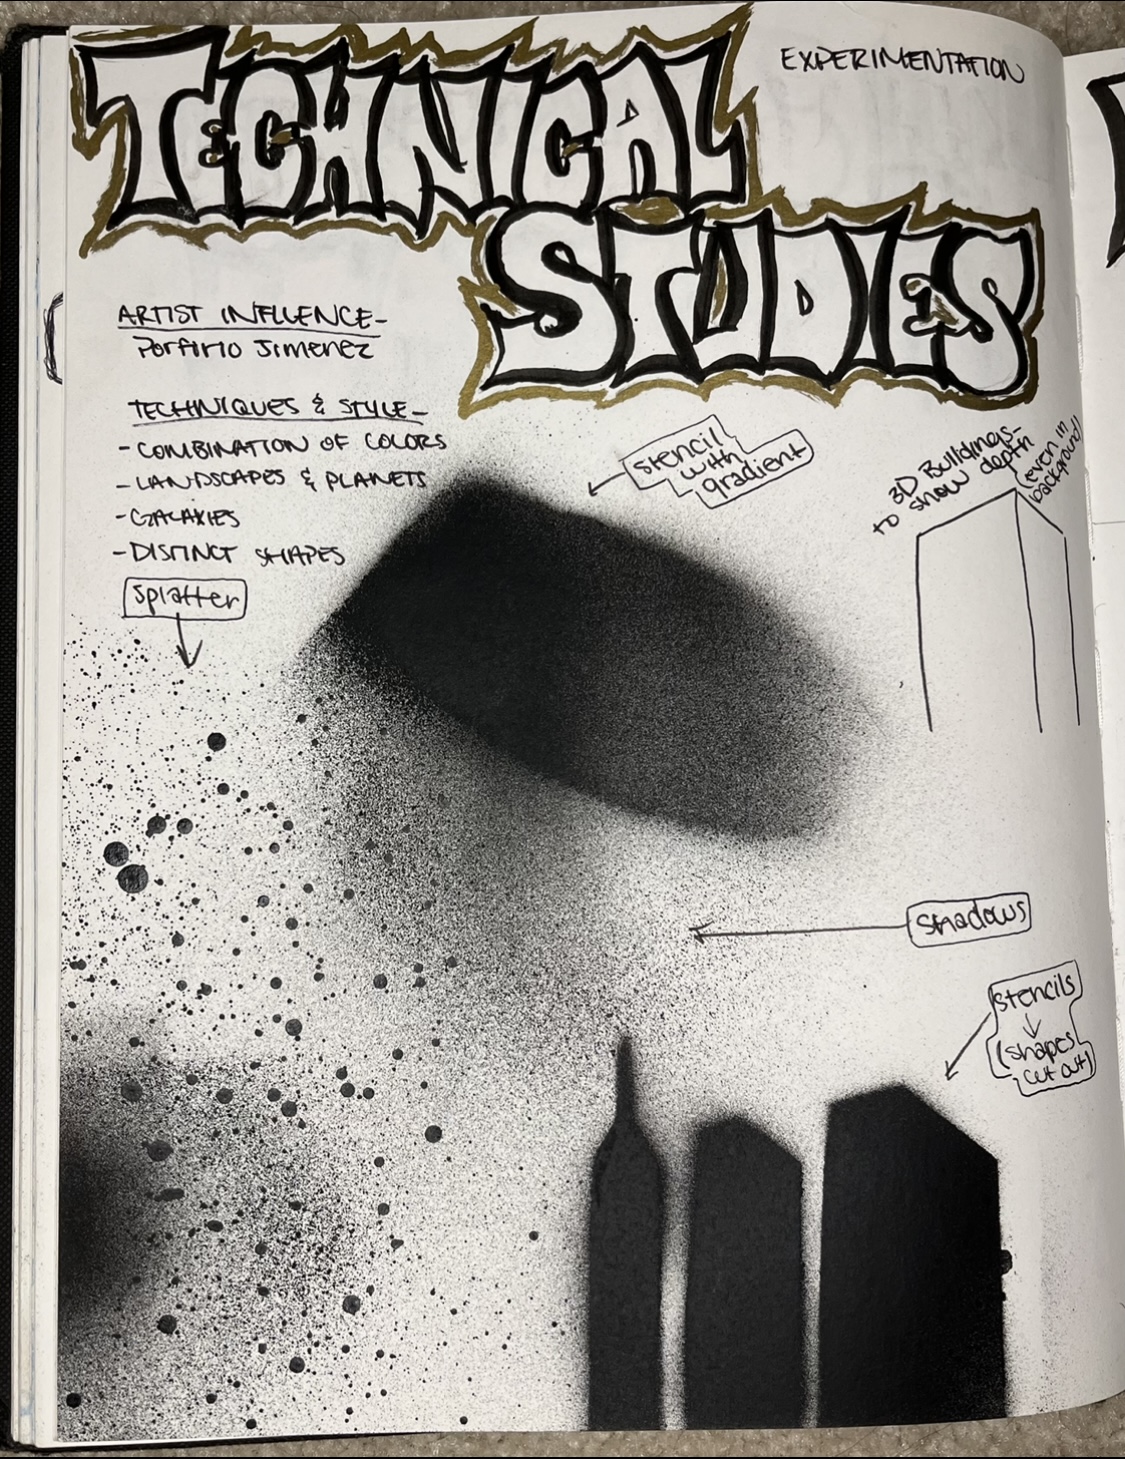 TECHNICAL
STUDIES
EXPERIMENTATION
ARTIST INFLUENCE-
Porfirio Jimenez
TECHNIQUES & STYLE-
- COMBINATION OF COLORS
- LANDSCAPES & PLANETS
- GALAXIES
- DISTINCT SHAPES
splatter
stencil
with
gradient
3D Buildings-
to show depth
(even in
background)
shadows
stencils
(shapes
cut out)